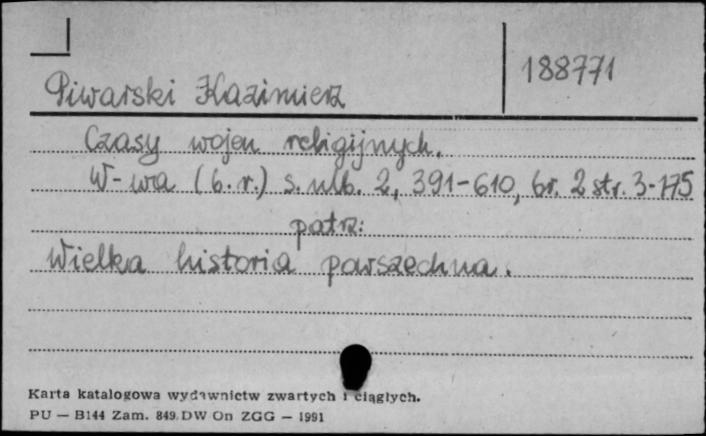 188771
Piwarski Kazimierz
Czasy wojen religijnych.
W-wa (b.r.) s. nlb. 2, 391-610, br. 2 str. 3-175
patrz:
Wielka historia powszechna.
Karta katalogowa wydawnictw zwartych i ciągłych.
PU — B144 Zam. 849. DW On ZGG — 1991